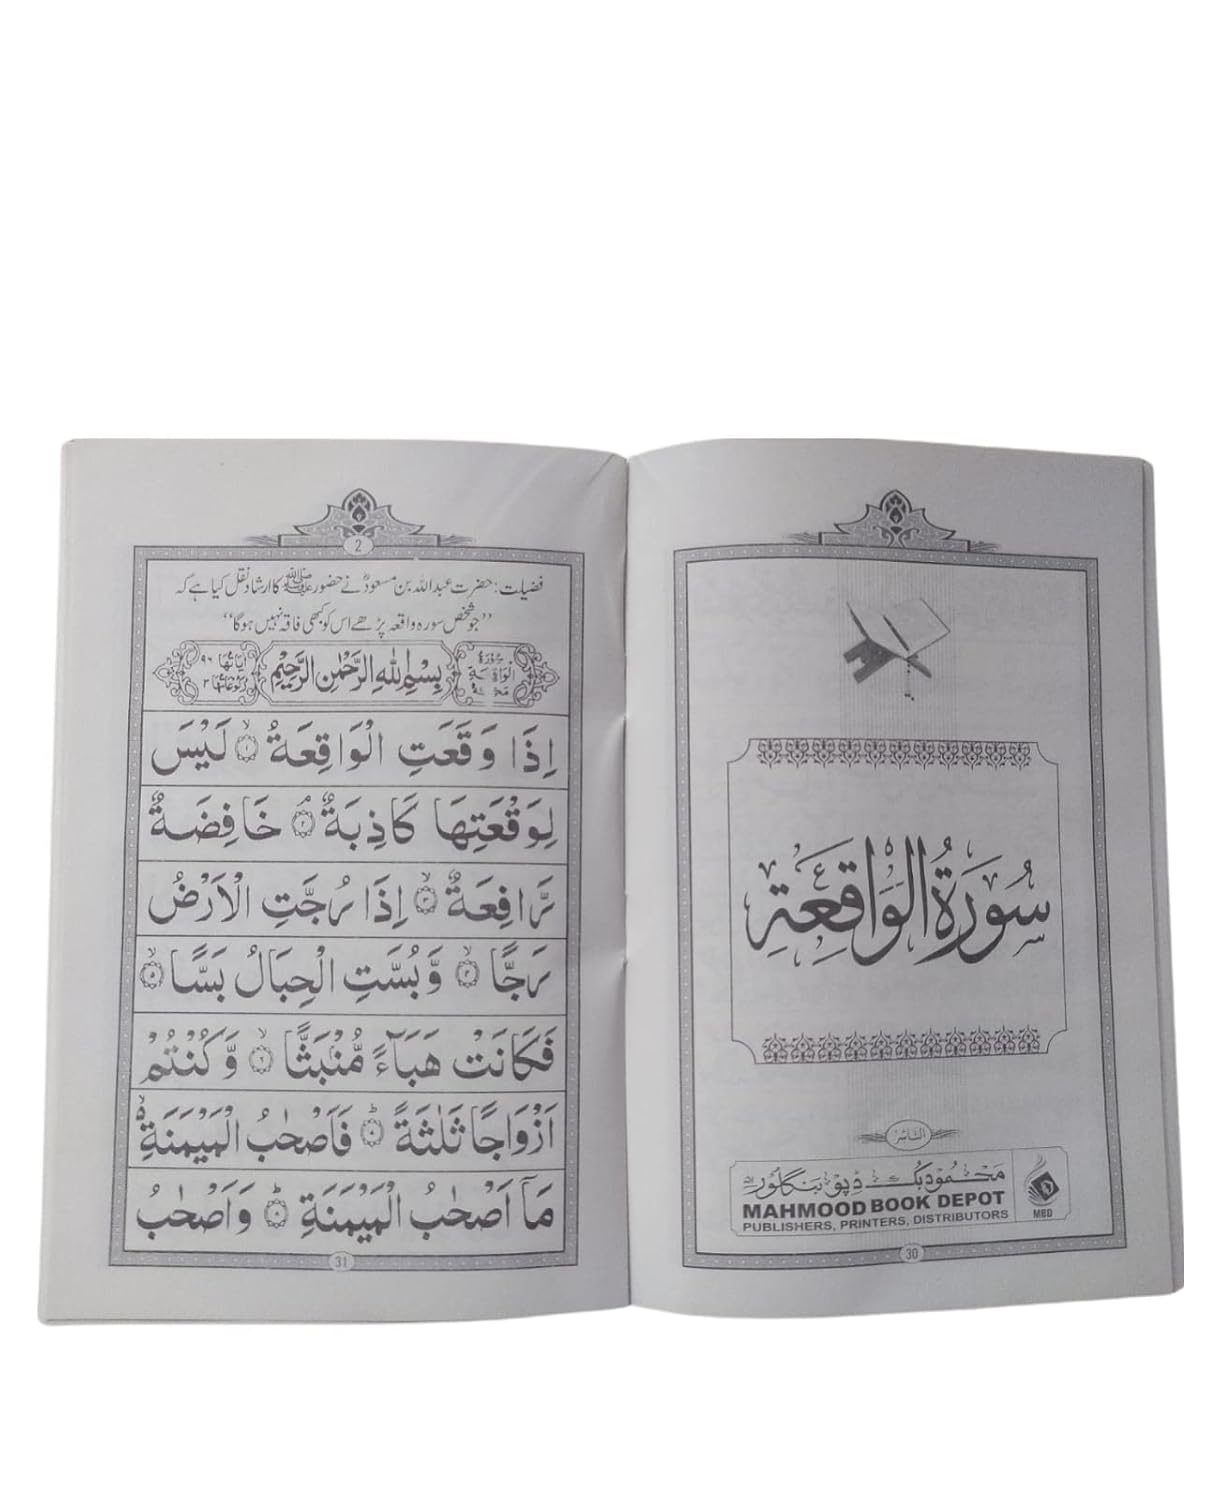 سُورَةُ الْوَاقِعَةِ
الناشر
محمود بک ڈپو بنگلور
MAHMOOD BOOK DEPOT
PUBLISHERS, PRINTERS, DISTRIBUTORS
MBD
30
2
فضیلت: حضرت عبداللہ بن مسعودؓ نے حضور ﷺ کا ارشاد نقل کیا ہے کہ
”جو شخص سورہ واقعہ پڑھے اس کو کبھی فاقہ نہیں ہوگا“
سُورَةُ الْوَاقِعَةِ
بِسْمِ اللهِ الرَّحْمٰنِ الرَّحِيْمِ
اٰيَاتُهَا ٩٦
رُكُوْعَاتُهَا ٣
اِذَا وَقَعَتِ الْوَاقِعَةُ ۙ‏﴿۱﴾ لَيْسَ
لِوَقْعَتِهَا كَاذِبَةٌ ۘ‏﴿۲﴾ خَافِضَةٌ
رَّافِعَةٌ ۙ‏﴿۳﴾ اِذَا رُجَّتِ الْاَرْضُ
رَجًّا ۙ‏﴿۴﴾ وَّبُسَّتِ الْجِبَالُ بَسًّا ۙ‏﴿۵﴾
فَكَانَتْ هَبَآءً مُّنْۢبَثًّا ۙ‏﴿۶﴾ وَّكُنْتُمْ
اَزْوَاجًا ثَلٰثَةً ؕ‏﴿۷﴾ فَاَصْحٰبُ الْمَيْمَنَةِ ۙ۬
مَاۤ اَصْحٰبُ الْمَيْمَنَةِ ؕ‏﴿۸﴾ وَاَصْحٰبُ
31